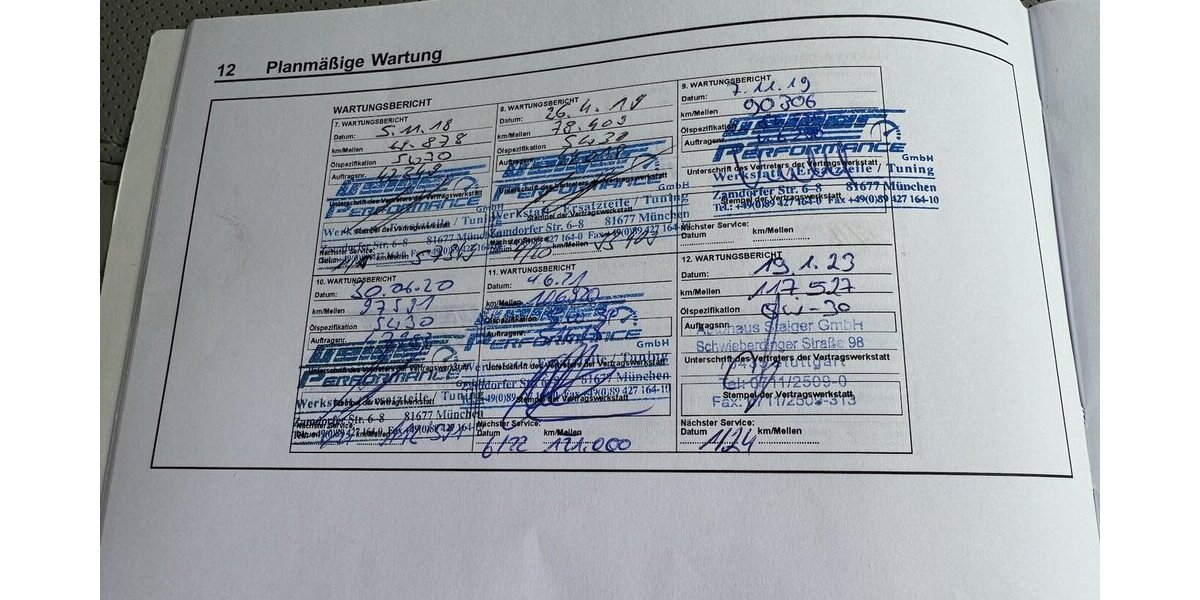 12 Planmäßige Wartung
WARTUNGSBERICHT
7. WARTUNGSBERICHT
Datum: 5.11.18
km/Meilen
Ölspezifikation 5W30
Auftragsnr.
Unterschrift des Vertreters der Vertragswerkstatt
PERFORMANCE
GmbH
Werkstatt / Ersatzteile / Tuning
Stempel der Vertragswerkstatt
Zamdorfer Str. 6-8 81677 München
Nächster Service:
Datum km/Meilen
8. WARTUNGSBERICHT
Datum: 26.4.19
km/Meilen 78.409
Ölspezifikation 5W30
Auftragsnr.
PERFORMANCE
GmbH
Unterschrift des Vertreters der Vertragswerkstatt
Werkstatt / Ersatzteile / Tuning
Stempel der Vertragswerkstatt
Zamdorfer Str. 6-8 81677 München
Nächster Service:
Datum 4/20 km/Meilen
9. WARTUNGSBERICHT
Datum: 7.11.19
km/Meilen 90306
Ölspezifikation
Auftragsnr.
PERFORMANCE
GmbH
Unterschrift des Vertreters der Vertragswerkstatt
Werkstatt / Ersatzteile / Tuning
Stempel der Vertragswerkstatt
Zamdorfer Str. 6-8 81677 München
Tel.: +49(0)89 427 164-0 Fax +49(0)89 427 164-10
Nächster Service:
Datum km/Meilen
10. WARTUNGSBERICHT
Datum: 30.06.20
km/Meilen 97531
Ölspezifikation 5W30
Auftragsnr.
Unterschrift des Vertreters der Vertragswerkstatt
PERFORMANCE
GmbH
Werkstatt / Ersatzteile / Tuning
Stempel der Vertragswerkstatt
Zamdorfer Str. 6-8 81677 München
Nächster Service:
Datum km/Meilen
11. WARTUNGSBERICHT
Datum: 4.6.21
km/Meilen 106920
Ölspezifikation
Auftragsnr.
PERFORMANCE
GmbH
Unterschrift des Vertreters der Vertragswerkstatt
Werkstatt / Ersatzteile / Tuning
Zamdorfer Str. 6-8 81677 München
Stempel der Vertragswerkstatt
Nächster Service:
Datum km/Meilen
6/22 121.000
12. WARTUNGSBERICHT
Datum: 19.1.23
km/Meilen 117.527
Ölspezifikation 0W-30
Auftragsnr.
Autohaus Staiger GmbH
Schwieberdinger Straße 98
Unterschrift des Vertreters der Vertragswerkstatt
Stuttgart
Tel: 0711/2509-0
Stempel der Vertragswerkstatt
Fax: 0711/2509-313
Nächster Service:
Datum 1/24 km/Meilen